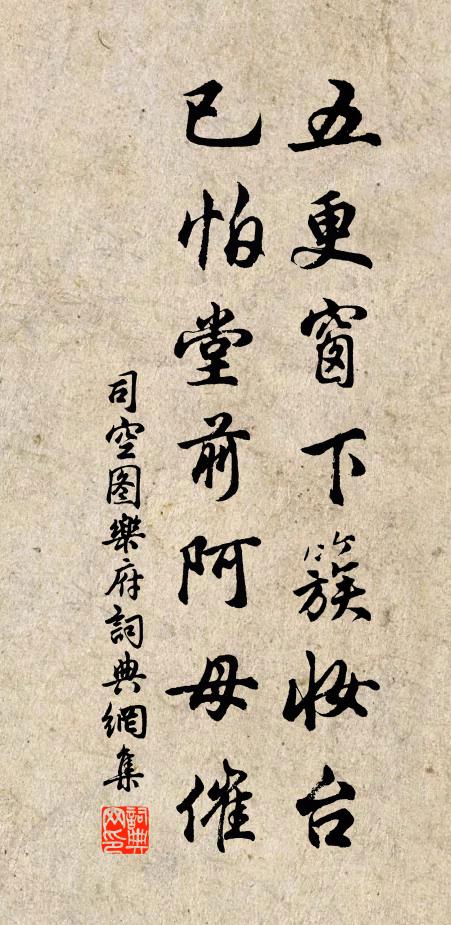 五更窗下簇妆台
已怕堂前阿母催
司空图樂府詞典網集
詞典網印